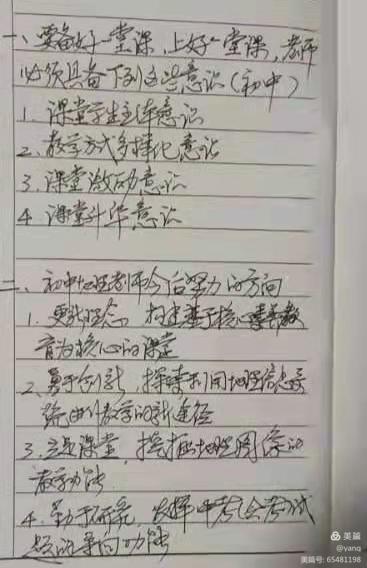 一、要备好一堂课，上好一堂课，老师
必须具备下列这些意识（初中）
1. 课堂学生主体意识
2、教学方式多样化意识
3. 课堂激励意识
4. 课堂升华意识
二、初中地理老师今后努力的方向
1. 更新理念，构建基于核心素养教
育为核心的课堂
2、勇于创新，探索利用地理信息系
统进行教学的新途径
3. 立足课堂，挖掘地理图像的
教学功能
4. 勤于研究，发挥中考会考试
题的导向功能
美篇
@yanq
美篇号: 65481198